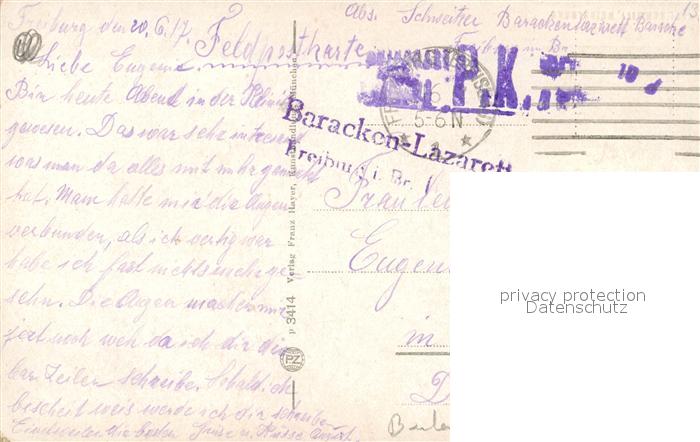 Freiburg den 20.6.17.
Feldpostkarte
Abs. Schweitzer Barackenlazarett Baracke
Freiburg i. Br.
Liebe Eugenie
Bin heute Abend in der Klinik
gewesen. Das war sehr interesand
was man da alles mit mihr gemacht
hat. Mann hatte mir die Augen
verbunden, als ich vertig war
habe ich fast nichts mehr ge
sehn. Die Augen machen mir
jezt noch weh da ich dir die
paar Zeilen schreibe. Sobald ich
bescheit weis werde ich dir schreiben
Einstweilen die besten Grüse u. Küsse August.
P.K.
5-6N
Baracken-Lazarett
Freiburg i. Br.
Fräulein
Eugen
in
p 3414 Verlag Franz Hayer, Kunsthandlung, München
PZ
privacy protection
Datenschutz